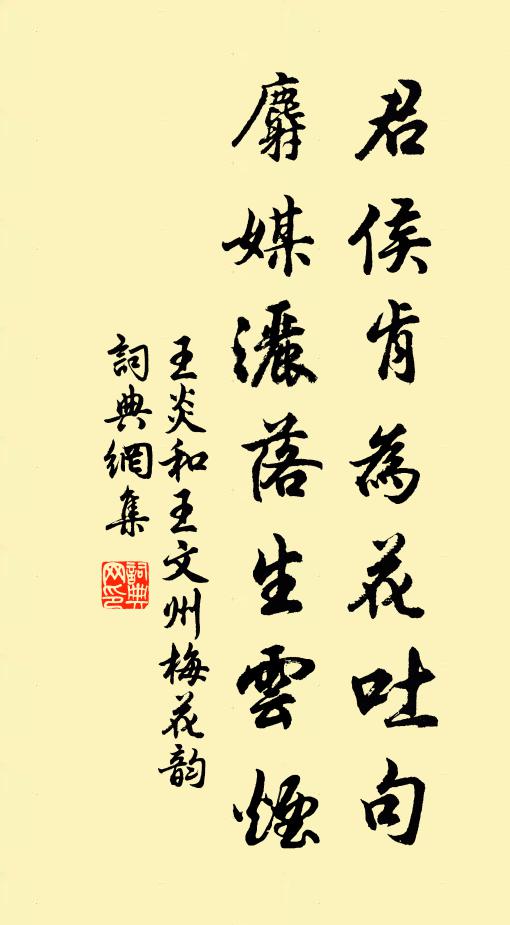 君侯肯為花吐句
麝媒灑落生雲煙
王炎和王文州梅花韵
詞典網集
詞典网印